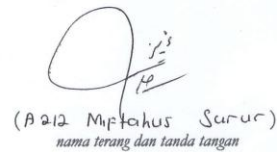 (Aziz Miftahus Surur)
nama terang dan tanda tangan